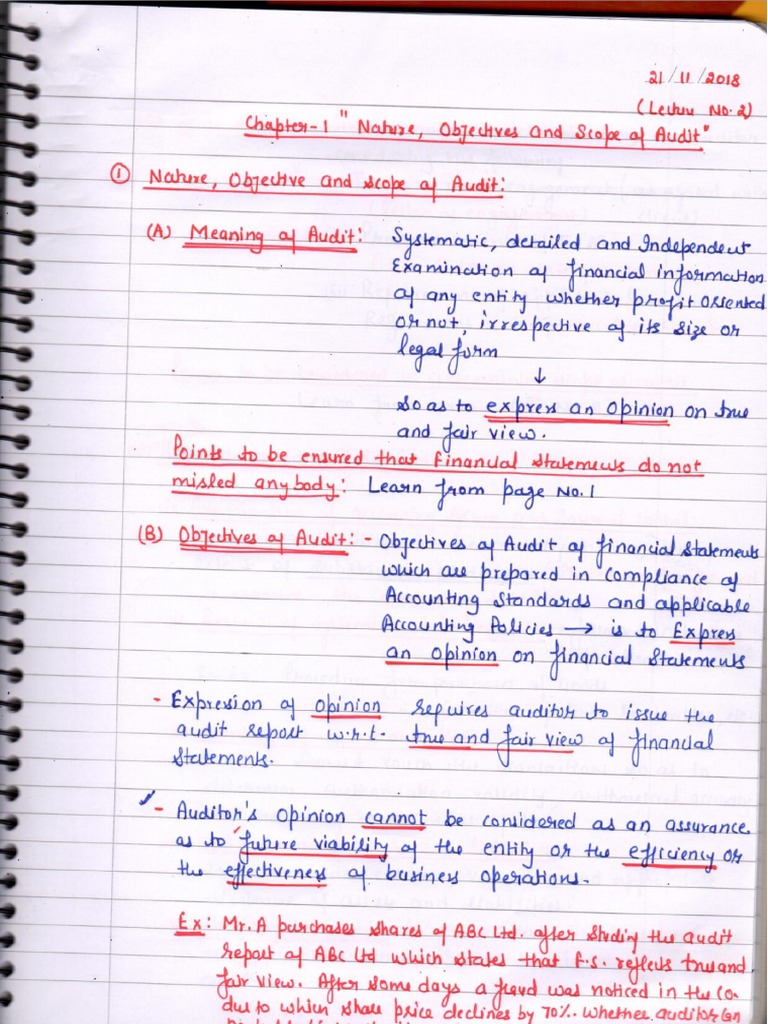 21/11/2018
(Lecture No.2)
Chapter-1 "Nature, Objectives and Scope of Audit"
① Nature, Objective and Scope of Audit:
(A) Meaning of Audit: Systematic, detailed and Independent
Examination of financial information
of any entity whether profit oriented
or not, irrespective of its size or
legal form
↓
so as to express an opinion on true
and fair view.
Points to be ensured that financial statements do not
misled anybody: Learn from page No.1
(B) Objectives of Audit: - Objectives of Audit of financial statements
which are prepared in compliance of
Accounting Standards and applicable
Accounting Policies → is to Express
an opinion on financial statements
- Expression of opinion requires auditor to issue the
audit report w.r.t. true and fair view of financial
statements.
- Auditor's opinion cannot be considered as an assurance
as to future viability of the entity or the efficiency or
the effectiveness of business operations.
Ex: Mr. A purchases shares of ABC Ltd. after studying the audit
report of ABC Ltd which states that f.s. reflects true and
fair view. After some days a fraud was noticed in the co.
due to which share price declines by 70%. Whether auditor can